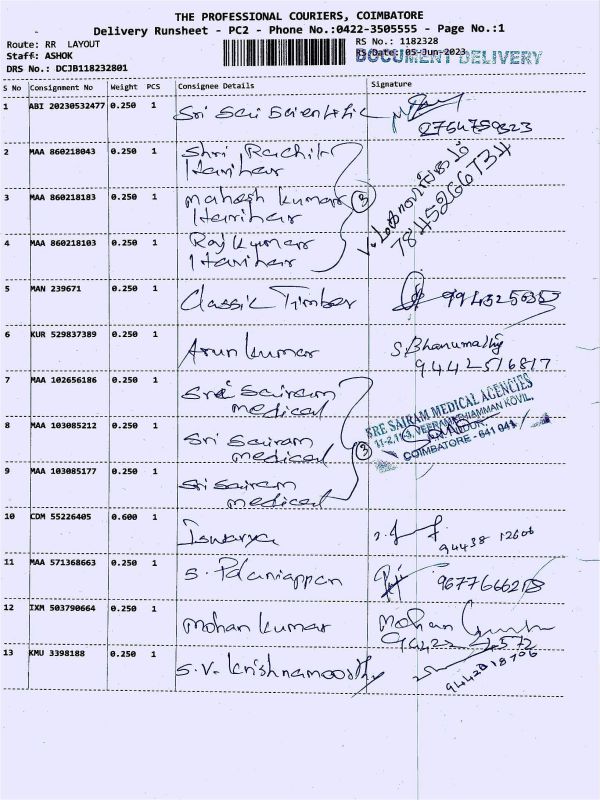 THE PROFESSIONAL COURIERS, COIMBATORE
Delivery Runsheet - PC2 - Phone No.:0422-3505555 - Page No.:1
Route: RR LAYOUT
RS No.: 1182328
Staff: ASHOK
RS Date: 05-Jun-2023
DOCUMENT DELIVERY
DRS No.: DCJB118232801
S No Consignment No Weight PCS Consignee Details Signature
1 ABI 20230532477 0.250 1 Sri Sai Scientific
2754759323
2 MAA 860218043 0.250 1 Shri Rachit
Harihar
3 MAA 860218183 0.250 1 Mahesh Kumar
Harihar
3
4 MAA 860218103 0.250 1 Raj Kumar
Harihar
7845266734
5 MAN 239671 0.250 1 Classic Timber
6 KUR 529837389 0.250 1 Arun Kumar S. Bhanumathy
9442516817
7 MAA 102656186 0.250 1 Sri Sairam
medical
8 MAA 103085212 0.250 1 Sri Sairam
medical
9 MAA 103085177 0.250 1 Sri Sairam
medical
3
SRE SAIRAM MEDICAL AGENCIES
COIMBATORE - 641 041
10 CDM 55226405 0.600 1 Iswarya
94438 12606
11 MAA 571368663 0.250 1 S. Palaniappan
12 IXM 503790664 0.250 1 Mohan Kumar Mohan
13 KMU 3398188 0.250 1 S.V. Krishnamoorthy